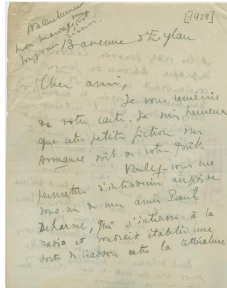 [1928]
mon
toujours 3 avenue d'Eylau
Cher ami,
Je vous remercie
de votre carte. Je suis heureux
que cette petite fiction sur
Armance soit de votre goût.
Voulez-vous me
permettre d'introduire auprès de
vous un de mes amis Paul
Deharme, qui s'intéresse à la
radio et voudrait établir une
sorte de liaison entre la littérature